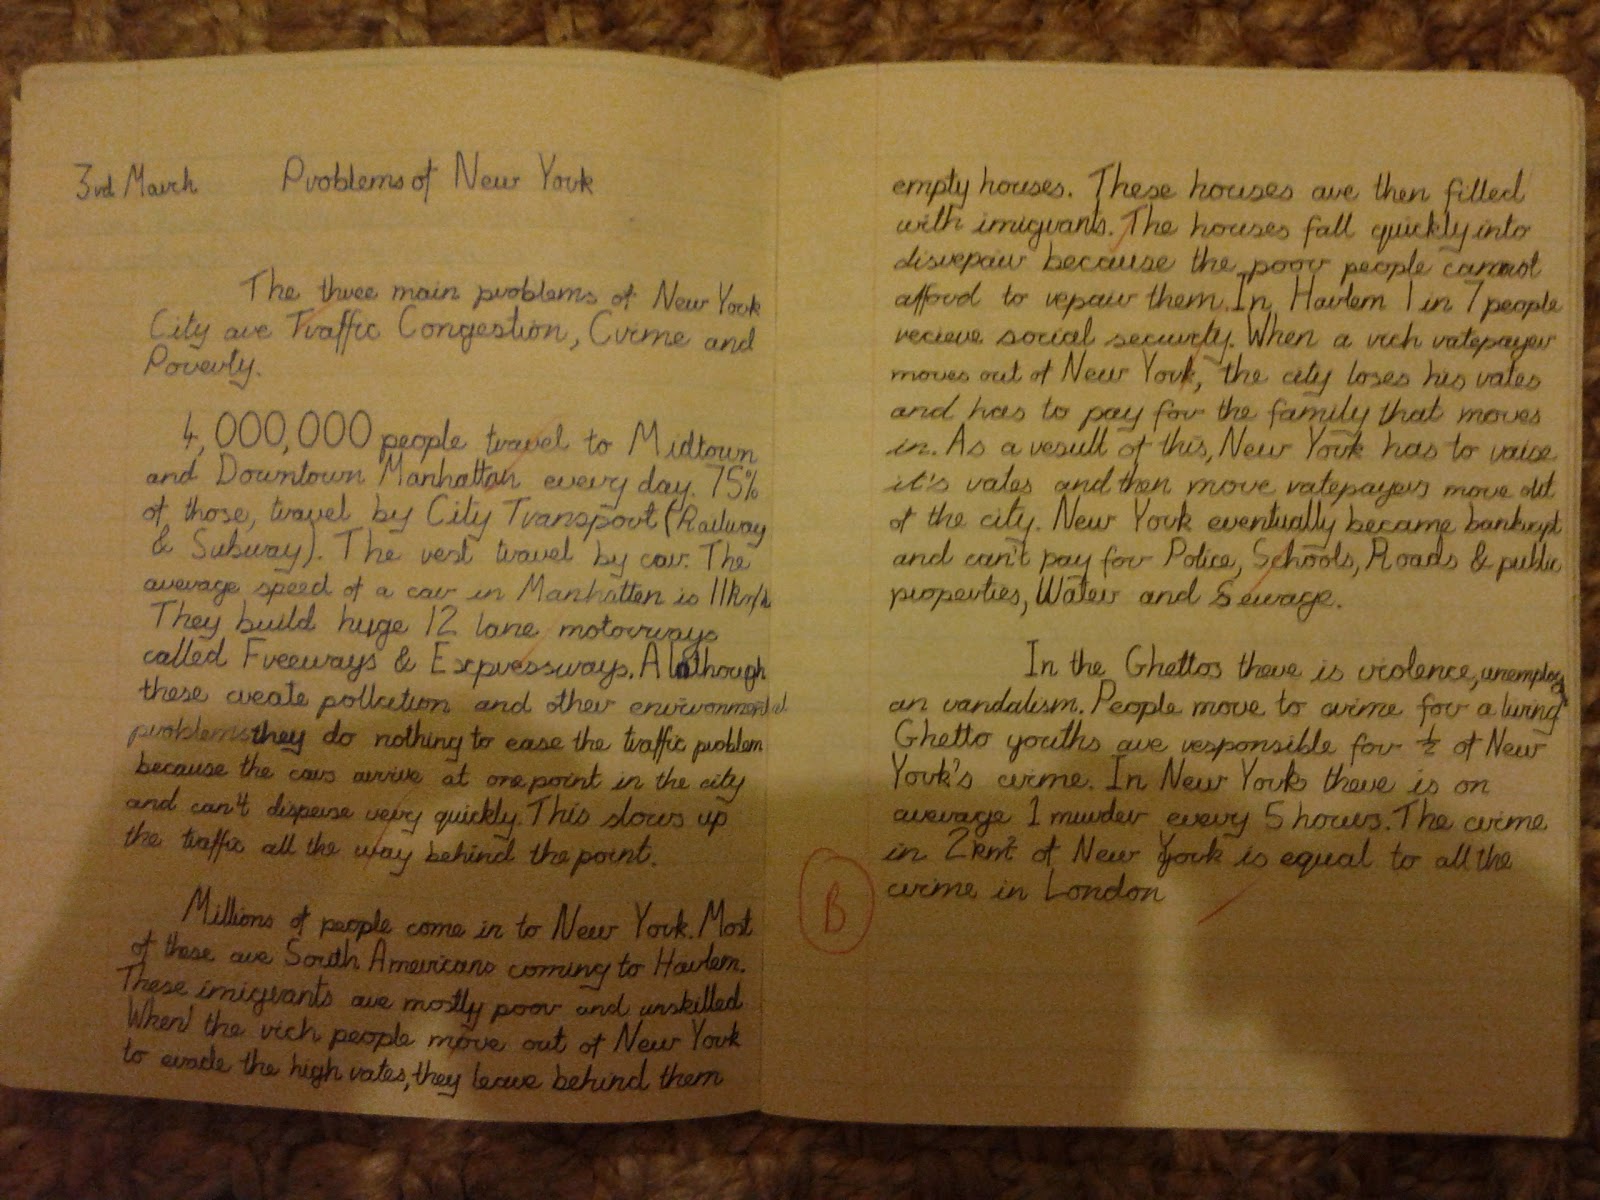 3rd March Problems of New York
The three main problems of New York
City are Traffic Congestion, Crime and
Poverty.
4,000,000 people travel to Midtown
and Downtown Manhattan every day. 75%
of those, travel by City Transport (Railway
& Subway). The rest travel by car. The
average speed of a car in Manhatten is 11km/h
They build huge 12 lane motorways
called Freeways & Expressways. Although
these create pollution and other environmental
problems they do nothing to ease the traffic problem
because the cars arrive at one point in the city
and can't disperse very quickly. This slows up
the traffic all the way behind the point.
Millions of people come in to New York. Most
of these are South Americans coming to Harlem.
These imigrants are mostly poor and unskilled
When the rich people move out of New York
to evade the high rates, they leave behind them
empty houses. These houses are then filled
with imigrants. The houses fall quickly into
disrepair because the poor people cannot
afford to repair them. In Harlem 1 in 7 people
recieve social security. When a rich ratepayer
moves out of New York, the city loses his rates
and has to pay for the family that moves
in. As a result of this, New York has to raise
it's rates and then move ratepayers move out
of the city. New York eventually became bankrupt
and can't pay for Police, Schools, Roads & public
properties, Water and Sewage.
In the Ghettos there is violence,
an vandalism. People move to crime for a living
Ghetto youths are responsible for ½ of New
York's crime. In New York there is on
average 1 murder every 5 hours. The crime
in 2km² of New York is equal to all the
crime in London
B